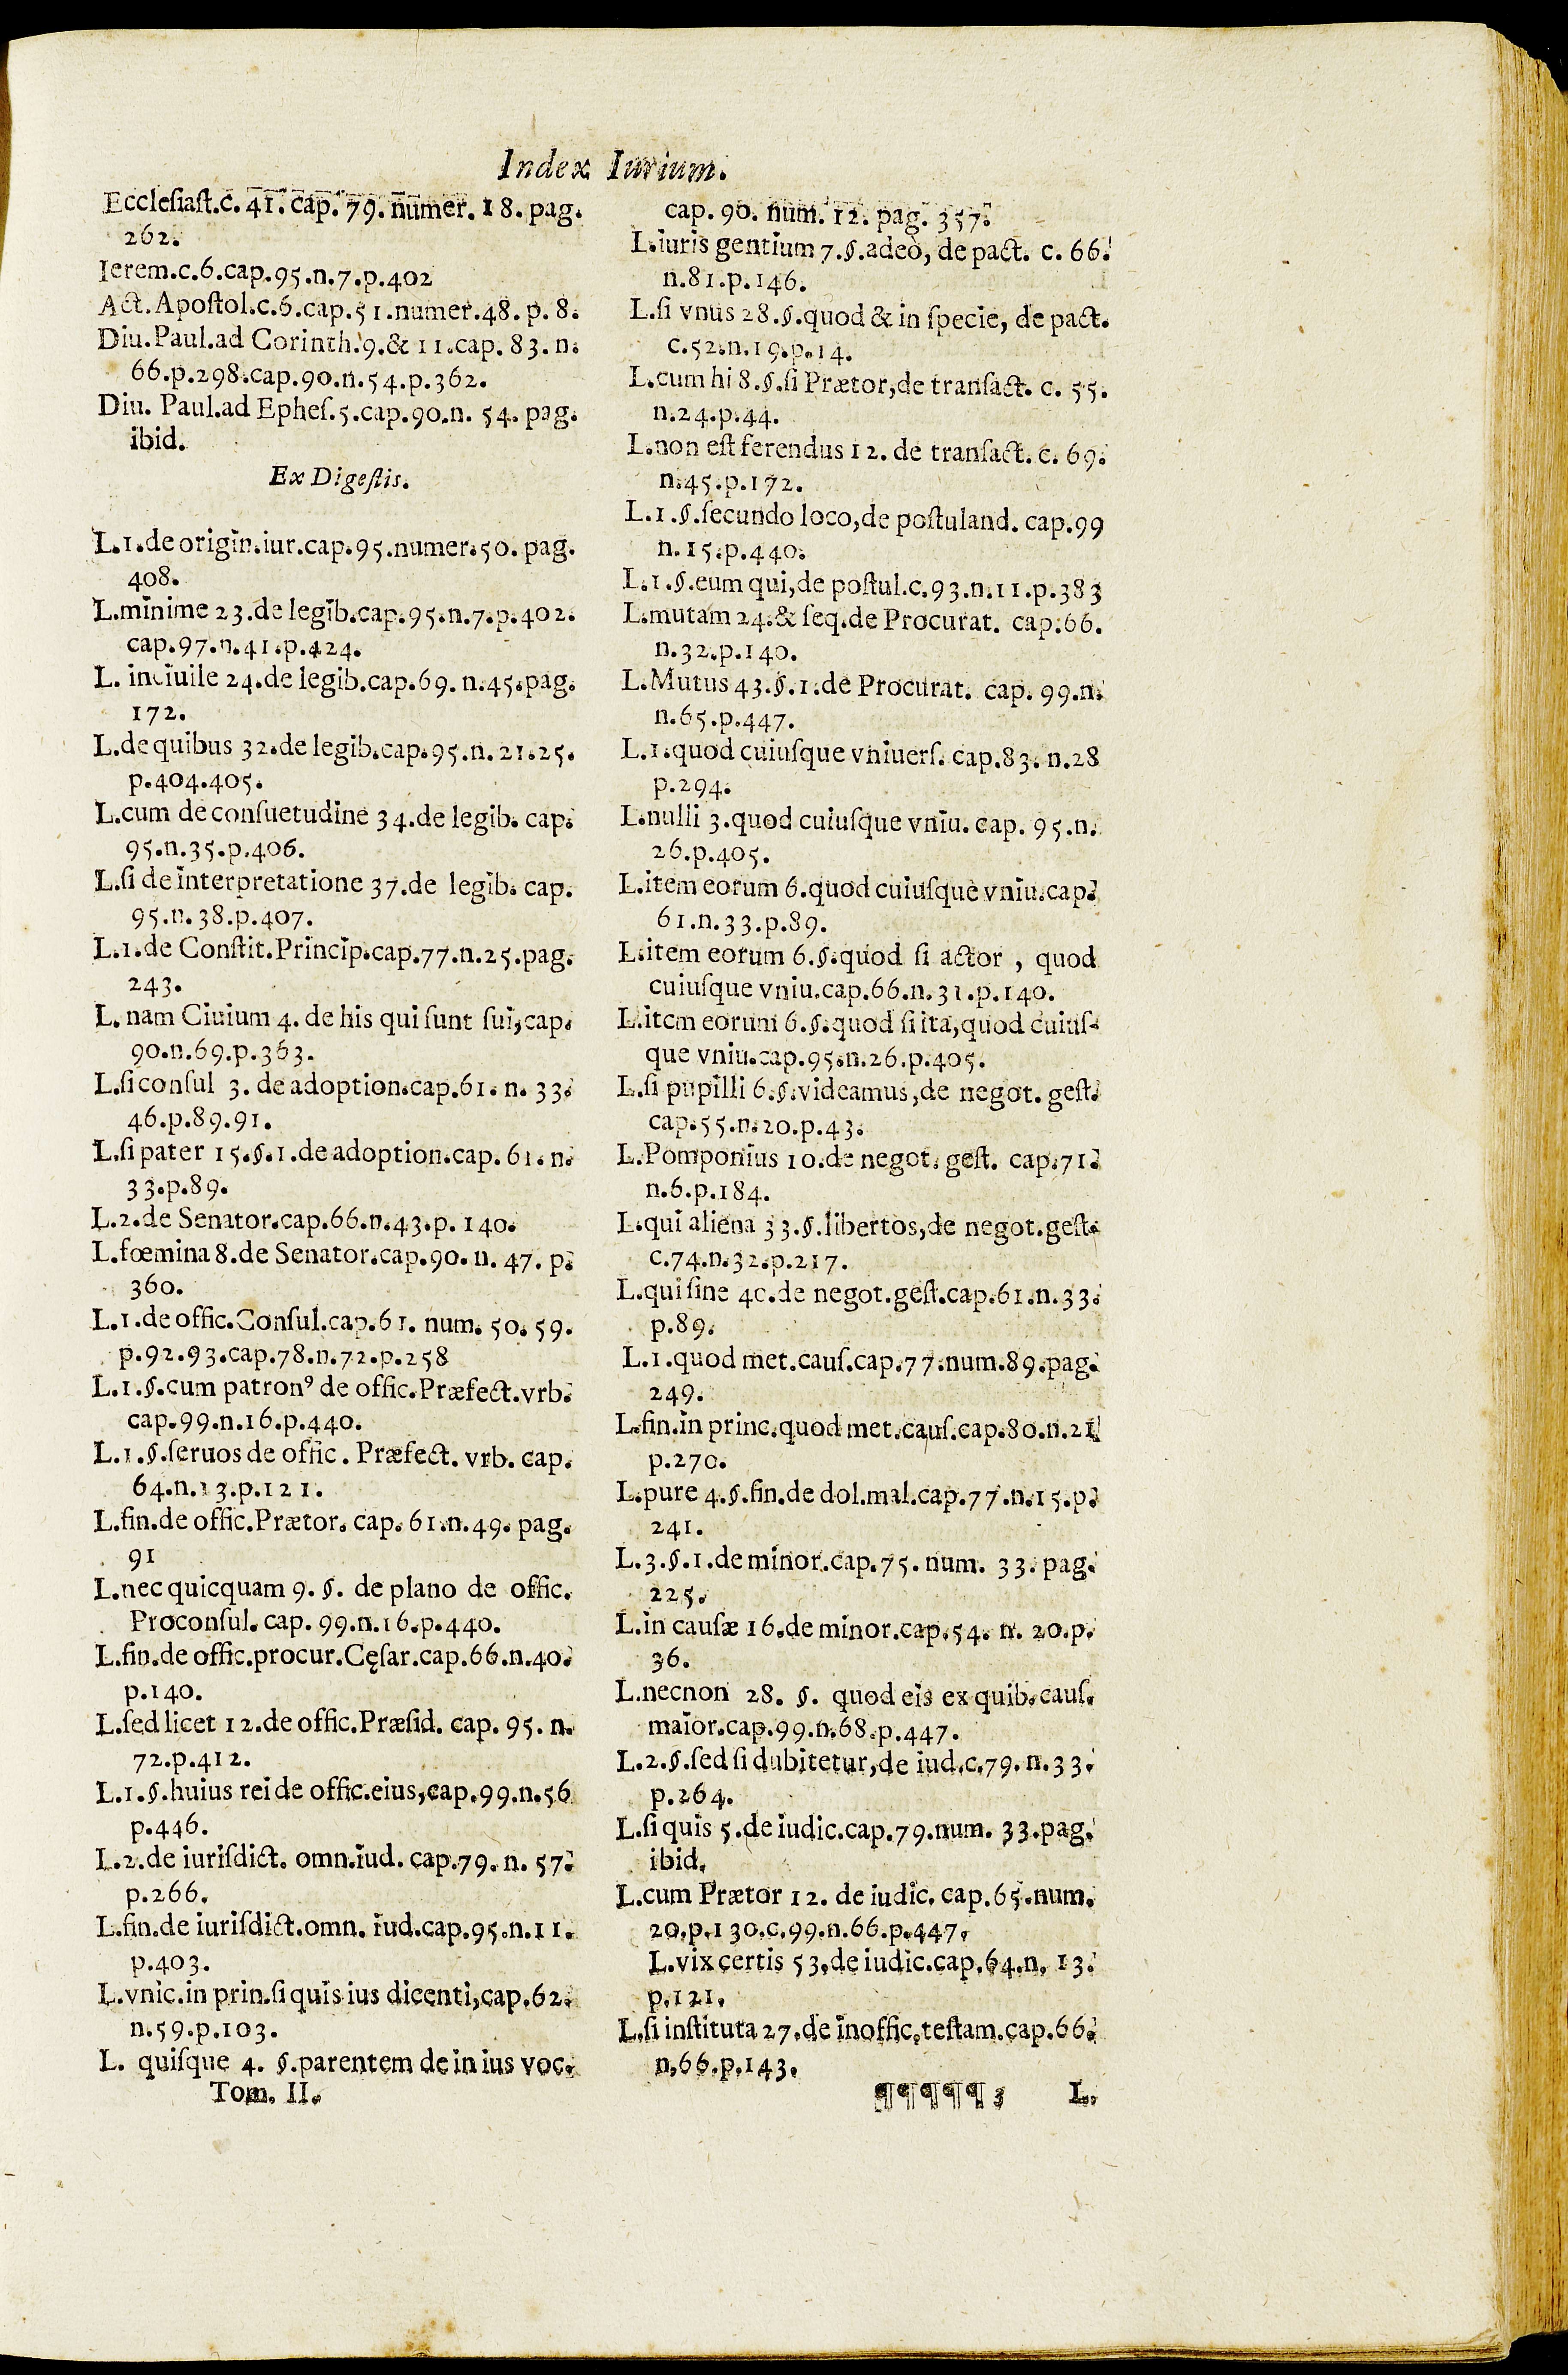 Index Iurium.
Ecclesiast.c. 41. cap. 79. numer. 18. pag.
262.
Ierem.c.6.cap.95.n.7.p.402
Act. Apostol.c.6.cap.51.numer.48. p. 8.
Diu. Paul.ad Corinth.9.& 11.cap. 83. n.
66.p.298.cap.90.n.54.p.362.
Diu. Paul.ad Ephes.5.cap.90.n. 54. pag.
ibid.
Ex Digestis.
L.1.de origin.iur.cap.95.numer.50. pag.
408.
L.minime 23.de legib.cap.95.n.7.p.402.
cap.97.n.41.p.424.
L. inciuile 24.de legib.cap.69. n.45.pag.
172.
L.de quibus 32.de legib.cap.95.n.21.25.
p.404.405.
L.cum de consuetudine 34.de legib. cap.
95.n.35.p.406.
L.si de interpretatione 37.de legib. cap.
95.n.38.p.407.
L.1.de Constit.Princip.cap.77.n.25.pag.
243.
L. nam Ciuium 4. de his qui sunt sui,cap.
90.n.69.p.363.
L.si consul 3. de adoption.cap.61. n. 33.
46.p.89.91.
L.si pater 15.§.1.de adoption.cap. 61. n.
33.p.89.
L.2.de Senator.cap.66.n.43.p. 140.
L.fœmina 8.de Senator.cap.90. n. 47. p.
360.
L.1.de offic.Consul.cap.61. num. 50. 59.
p.92.93.cap.78.n.72.p.258
L.1.§.cum patronꝰ de offic.Præfect.vrb.
cap.99.n.16.p.440.
L.1.§.seruos de offic. Præfect. vrb. cap.
64.n.13.p.121.
L.fin.de offic.Prætor. cap. 61.n.49. pag.
91
L.nec quicquam 9. §. de plano de offic.
Proconsul. cap. 99.n.16.p.440.
L.fin.de offic.procur.Cęsar.cap.66.n.40.
p.140.
L.sed licet 12.de offic.Præsid. cap. 95. n.
72.p.412.
L.1.§.huius rei de offic.eius,cap.99.n.56
p.446.
L.2.de iurisdict. omn.iud. cap.79. n. 57.
p.266.
L.fin.de iurisdict.omn. iud.cap.95.n.11.
p.403.
L.vnic.in prin.si quis ius dicenti,cap.62.
n.59.p.103.
L. quisque 4. §.parentem de in ius voc.
Tom. II.
cap. 90. num. 12. pag. 357.
L.iuris gentium 7.§.adeò, de pact. c. 66.
n.81.p.146.
L.si vnus 28.§.quod & in specie, de pact.
c.52.n.19.p.14.
L.cum hi 8.§.si Prætor,de transact. c. 55.
n.24.p.44.
L.non est ferendus 12. de transact. c. 69.
n.45.p.172.
L.1.§.secundo loco,de postuland. cap.99
n.15.p.440.
L.1.§.eum qui,de postul.c.93.n.11.p.383
L.mutam 24.& seq.de Procurat. cap.66.
n.32.p.140.
L.Mutus 43.§.1.de Procurat. cap. 99.n.
n.65.p.447.
L.1.quod cuiusque vniuers. cap.83. n.28
p.294.
L.nulli 3.quod cuiusque vniu. cap. 95.n.
26.p.405.
L.item eorum 6.quod cuiusque vniu.cap.
61.n.33.p.89.
L.item eorum 6.§.quod si actor , quod
cuiusque vniu.cap.66.n.31.p.140.
L.item eorum 6.§.quod si ita,quod cuius-
que vniu.cap.95.n.26.p.405.
L.si pupilli 6.§.videamus,de negot. gest.
cap.55.n.20.p.43.
L.Pomponius 10.de negot. gest. cap.71.
n.6.p.184.
L.qui aliena 33.§.libertos,de negot.gest.
c.74.n.32.p.217.
L.qui sine 40.de negot.gest.cap.61.n.33.
p.89.
L.1.quod met.caus.cap.77.num.89.pag.
249.
L.fin.in princ.quod met.caus.cap.80.n.21
p.270.
L.pure 4.§.fin.de dol.mal.cap.77.n.15.p.
241.
L.3.§.1.de minor.cap.75. num. 33. pag.
225.
L.in causæ 16.de minor.cap.54. n. 20.p.
36.
L.necnon 28. §. quod eis ex quib.caus.
maior.cap.99.n.68.p.447.
L.2.§.sed si dubitetur,de iud.c.79. n.33.
p.264.
L.si quis 5.de iudic.cap.79.num. 33.pag.
ibid.
L.cum Prætor 12. de iudic. cap.65.num.
20.p.130.c.99.n.66.p.447.
L.vix certis 53.de iudic.cap.64.n. 13.
p.121.
L.si instituta 27.de inoffic.testam.cap.66.
n.66.p.143.
¶¶¶¶¶ 3 L.